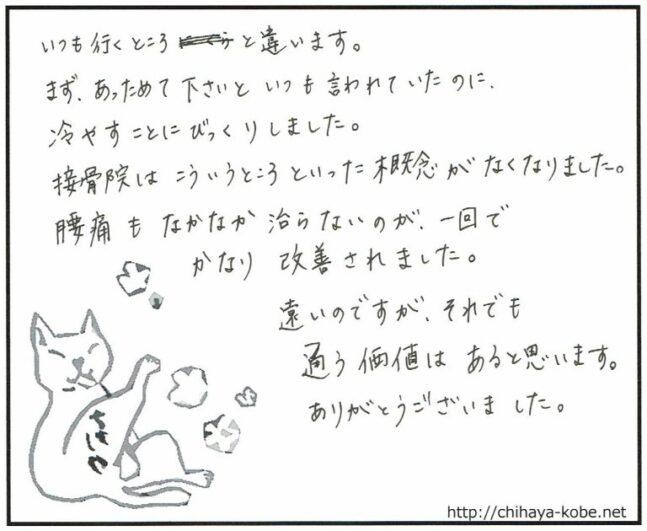 いつも行くところと違います。
まず、あっためて下さいといつも言われていたのに、
冷やすことにびっくりしました。
接骨院はこういうところといった概念がなくなりました。
腰痛もなかなか治らないのが、一回で
かなり改善されました。
遠いのですが、それでも
通う価値はあると思います。
ありがとうございました。
ちはや
http://chihaya-kobe.net